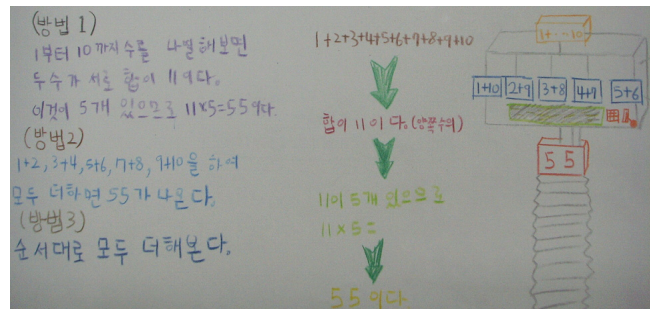 (방법1)
1부터 10까지 수를 나열해보면
두 수가 서로 합이 11이다.
이것이 5개 있으므로 11×5=55이다.
(방법2)
1+2, 3+4, 5+6, 7+8, 9+10을 하여
모두 더하면 55가 나온다.
(방법3)
순서대로 모두 더해본다.
1+2+3+4+5+6+7+8+9+10
합이 11이다. (양쪽수의)
11이 5개 있으므로
11×5=
55이다
1+...10
1+10 2+9 3+8 4+7 5+6
55